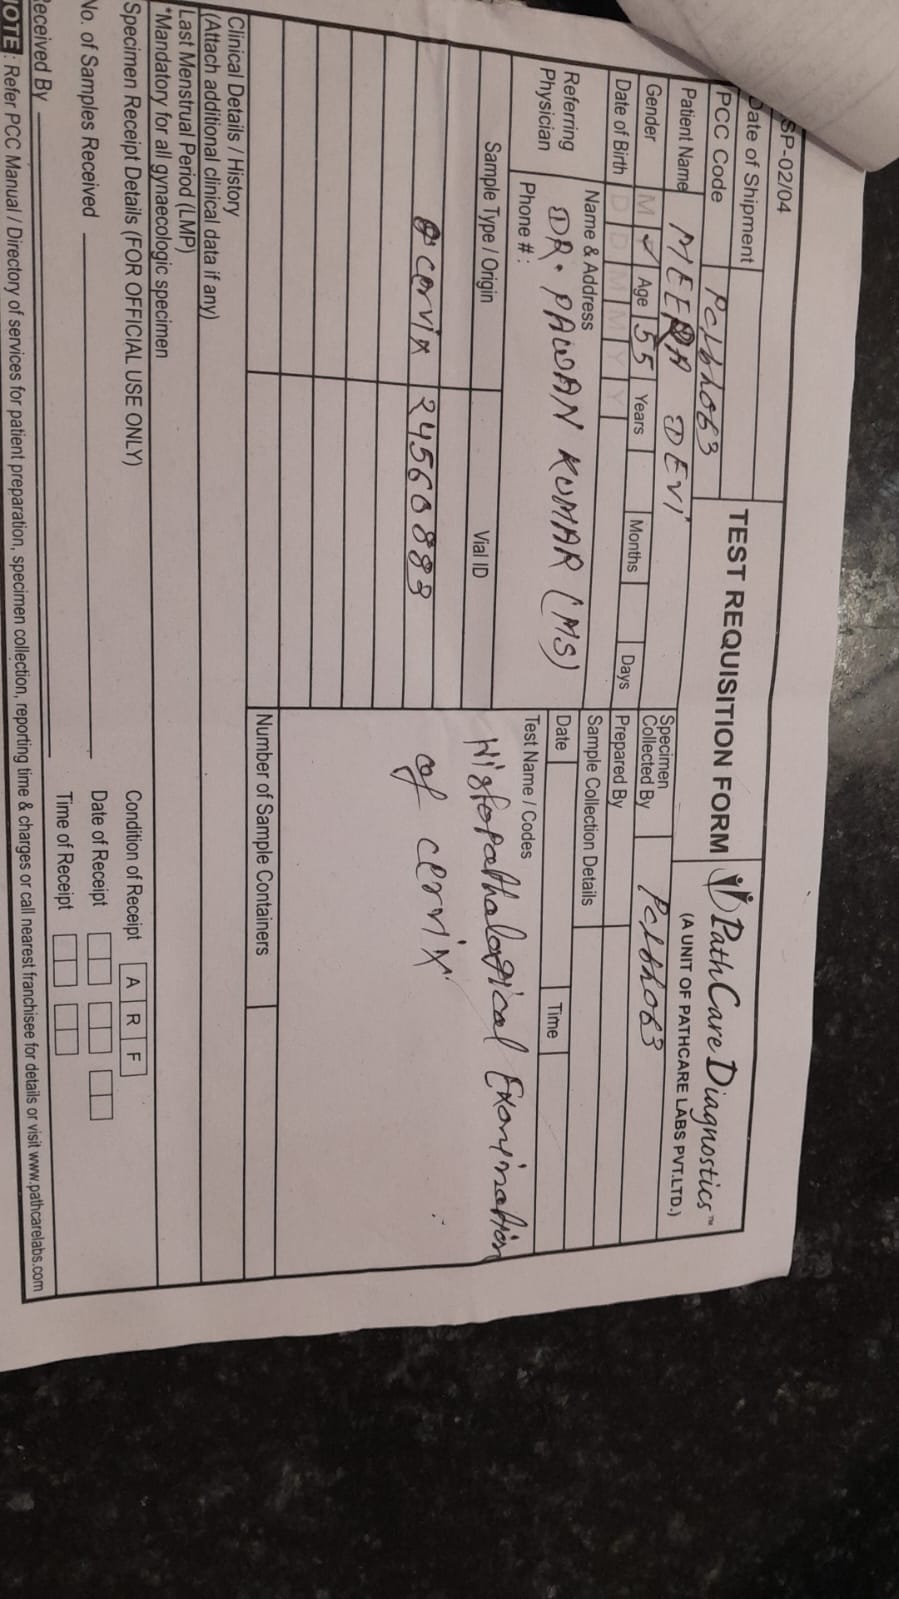 SP-02/04
Date of Shipment
TEST REQUISITION FORM
PathCare Diagnostics™
(A UNIT OF PATHCARE LABS PVT.LTD.)
PCC Code
Patient Name MEERA DEVI
Specimen Collected By
Gender M Age 55 Years Months Days
Prepared By
Date of Birth D D M M Y Y
Sample Collection Details
Referring Physician
Name & Address
DR. PAWAN KUMAR (MS)
Phone # :
Date Time
Test Name / Codes
Sample Type / Origin Vial ID
Histopathological Examination
of cervix
cervix 24560883
Number of Sample Containers
Clinical Details / History
(Attach additional clinical data if any)
Last Menstrual Period (LMP)
*Mandatory for all gynaecologic specimen
Specimen Receipt Details (FOR OFFICIAL USE ONLY)
Condition of Receipt A R F
No. of Samples Received
Date of Receipt
Received By
Time of Receipt
NOTE : Refer PCC Manual / Directory of services for patient preparation, specimen collection, reporting time & charges or call nearest franchisee for details or visit www.pathcarelabs.com